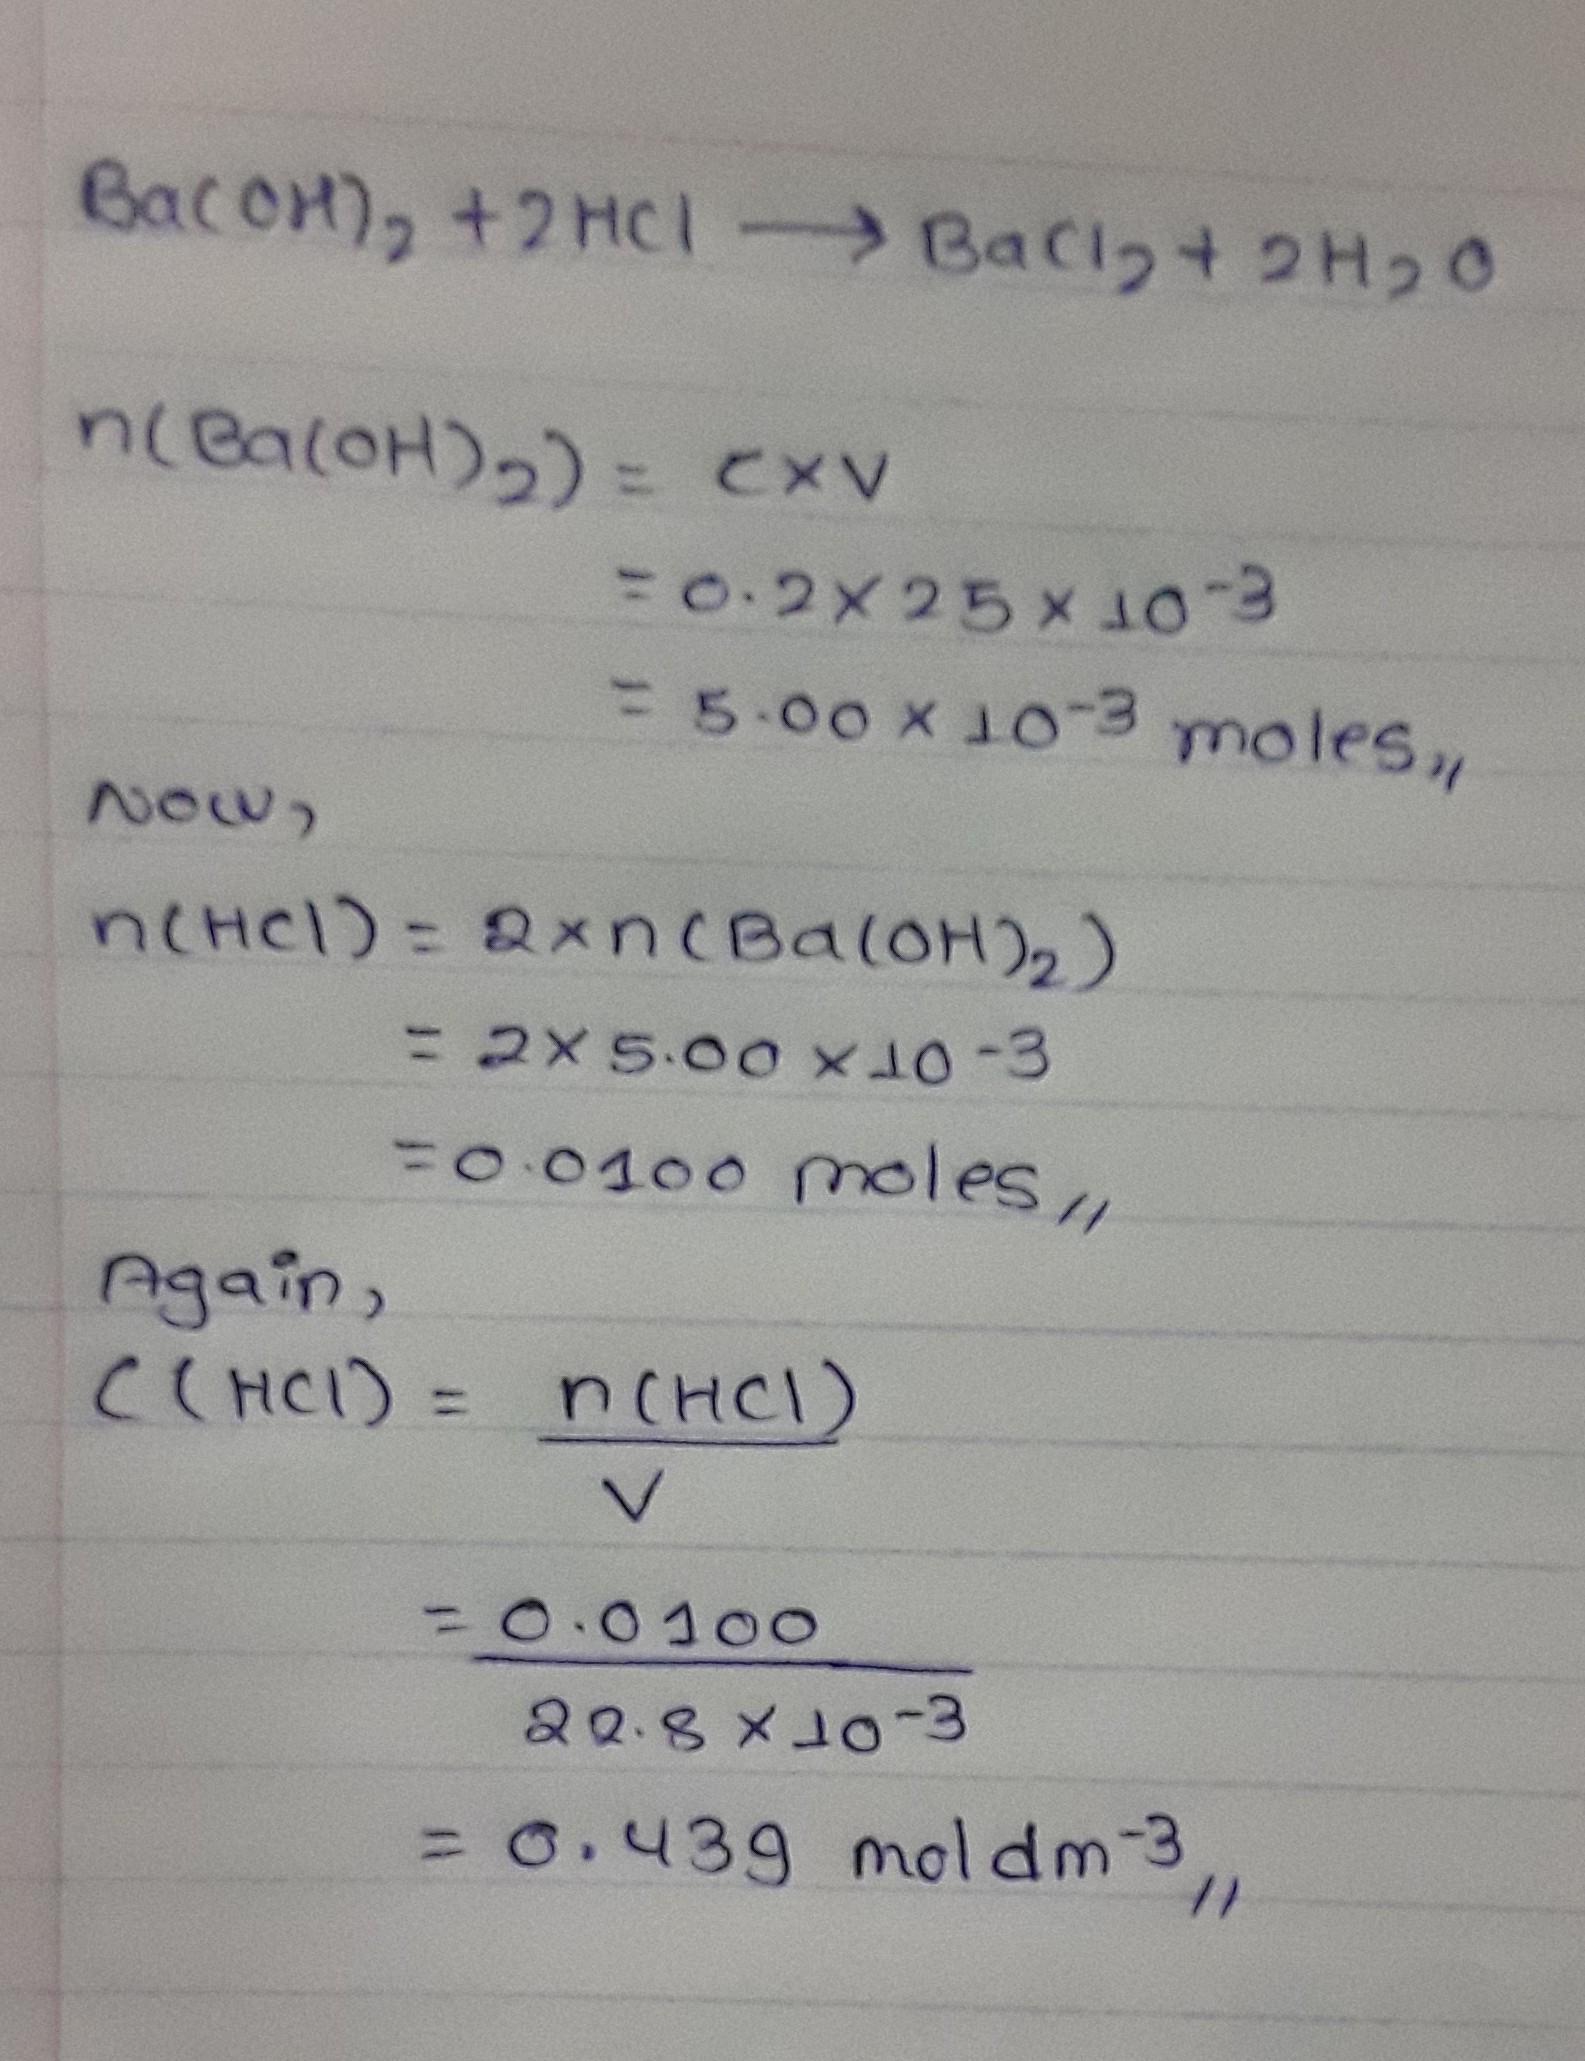 Ba(OH)₂ + 2HCl ⟶ BaCl₂ + 2H₂O
n(Ba(OH)₂) = C×V
= 0.2 × 25 × 10⁻³
= 5.00 × 10⁻³ moles,,
Now,
n(HCl) = 2×n(Ba(OH)₂)
= 2 × 5.00 × 10 -3
= 0.0100 moles,,
Again,
C(HCl) = n(HCl)
V
= 0.0100
22.8 × 10⁻³
= 0.439 mol dm⁻³,,